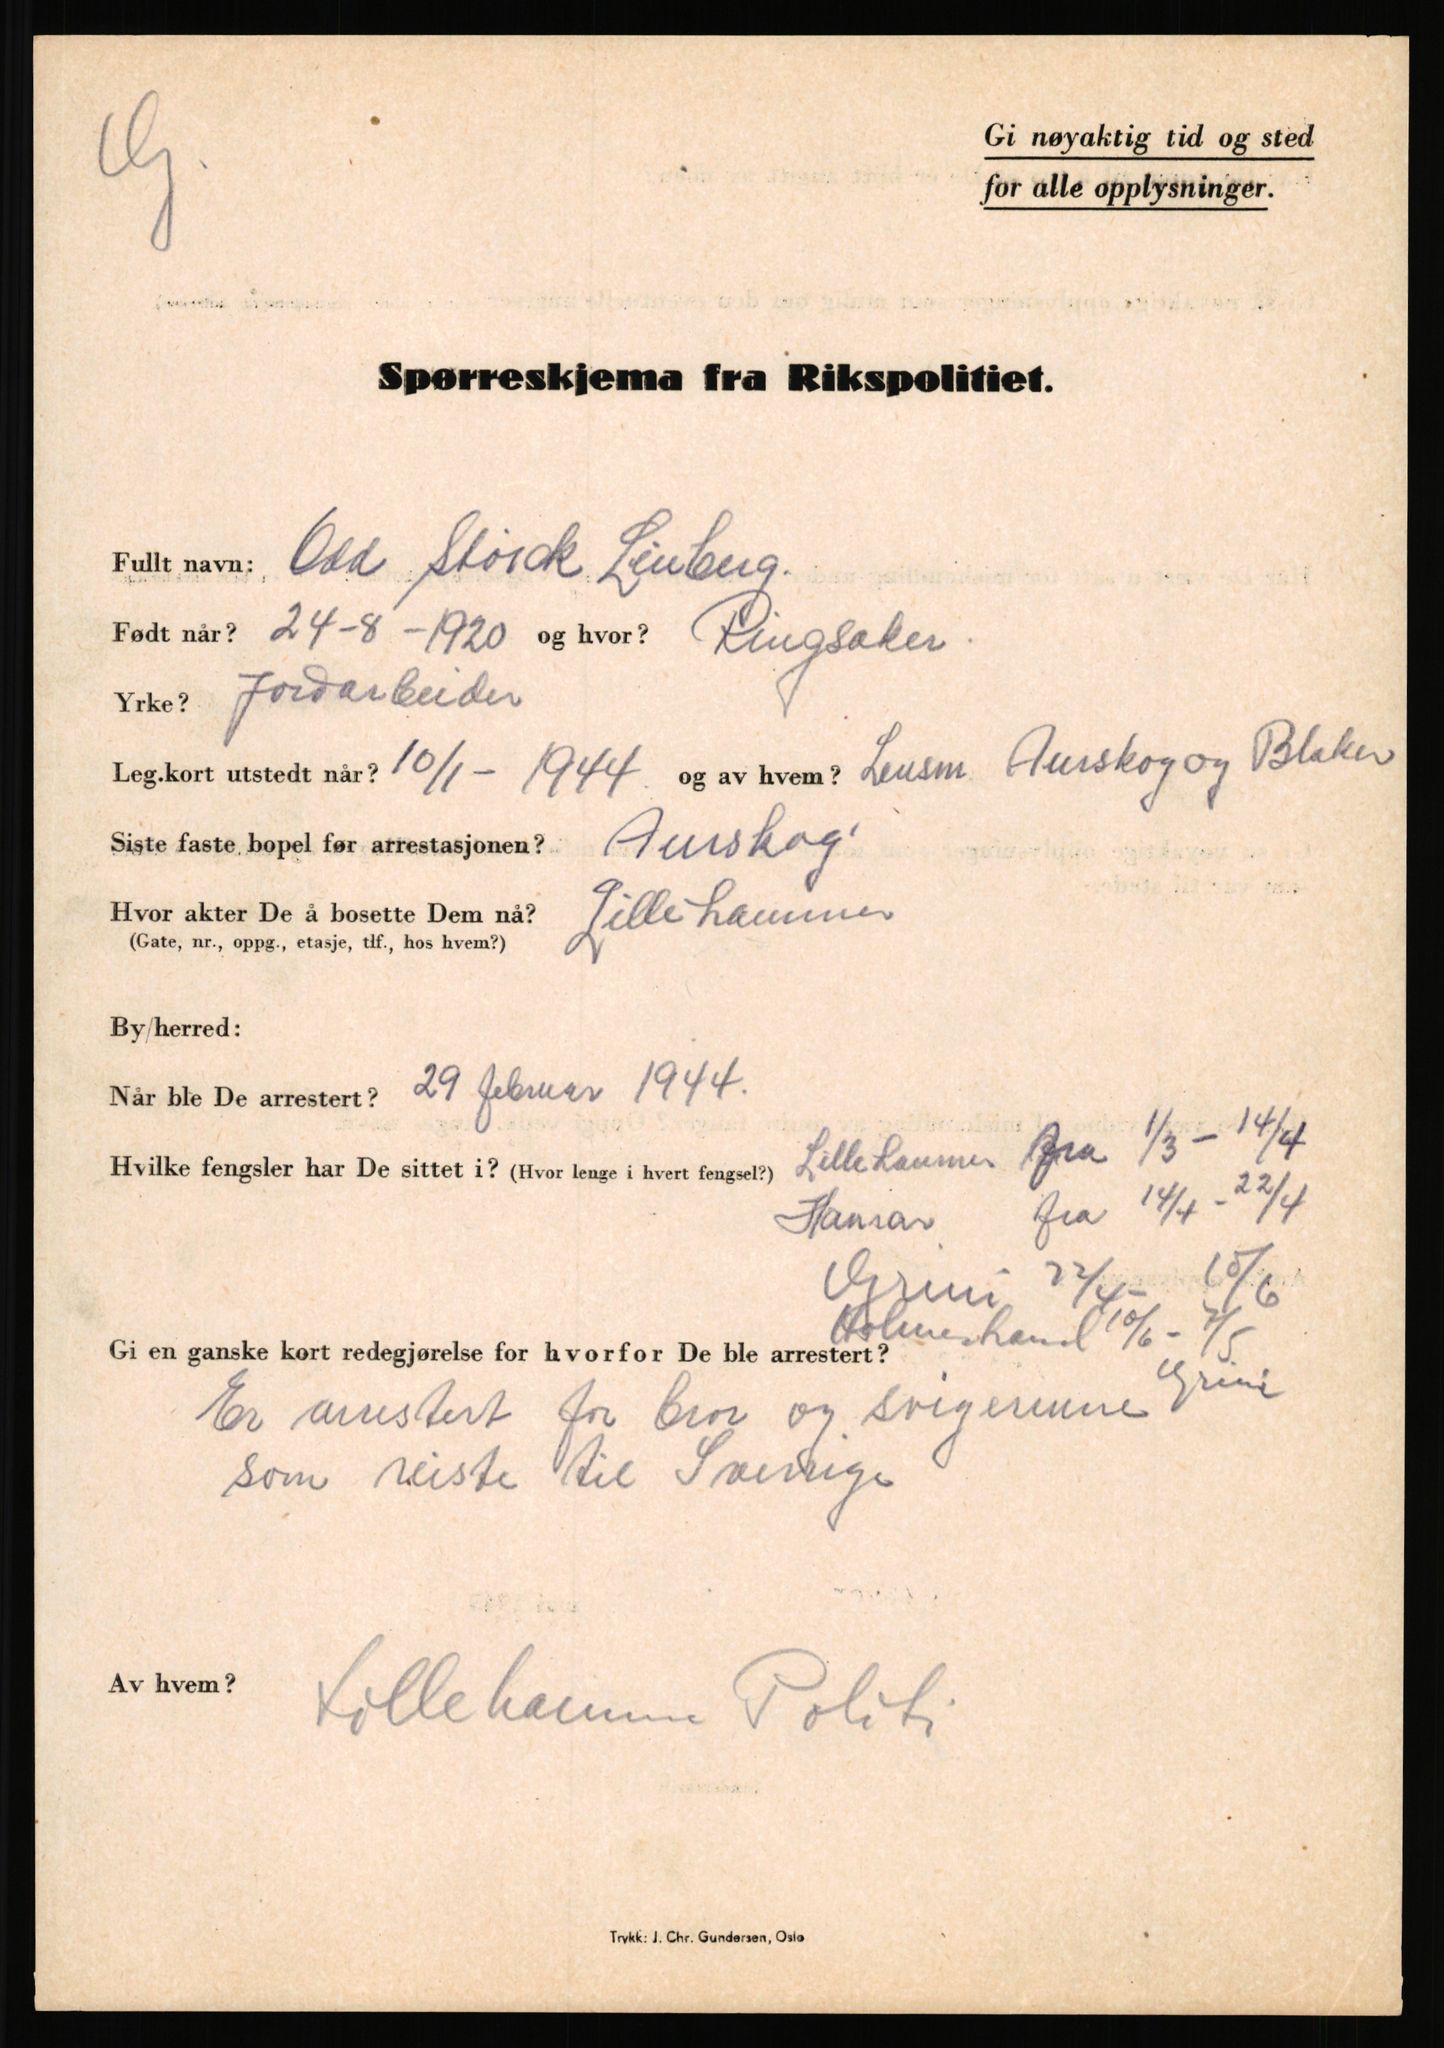 Gi nøyaktig tid og sted
for alle opplysninger.
Spørreskjema fra Rikspolitiet.
Fullt navn: Odd Störck Linberg.
Født når? 24-8-1920 og hvor? Ringsaker.
Yrke? Jordarbeider
Leg.kort utstedt når? 10/1 - 1944 og av hvem? Lensm Aurskog og Blaker
Siste faste bopel før arrestasjonen? Aurskog
Hvor akter De å bosette Dem nå? Lillehammer
(Gate, nr., oppg., etasje, tlf., hos hvem?)
By/herred:
Når ble De arrestert? 29 februar 1944.
Hvilke fengsler har De sittet i? (Hvor lenge i hvert fengsel?) Lillehammer fra 1/3 - 14/4
Hamar fra 14/4 - 22/4
Grini 22/4 - 10/6
Holmestrand 10/6 - 7/5
Gi en ganske kort redegjørelse for hvorfor De ble arrestert?
Grini
Er arrestert for bror og svigerinne
som reiste til Sverige
Av hvem? Lillehammer Politi
Trykk: J. Chr. Gundersen, Oslo